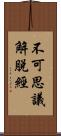 不可思議
解脱經